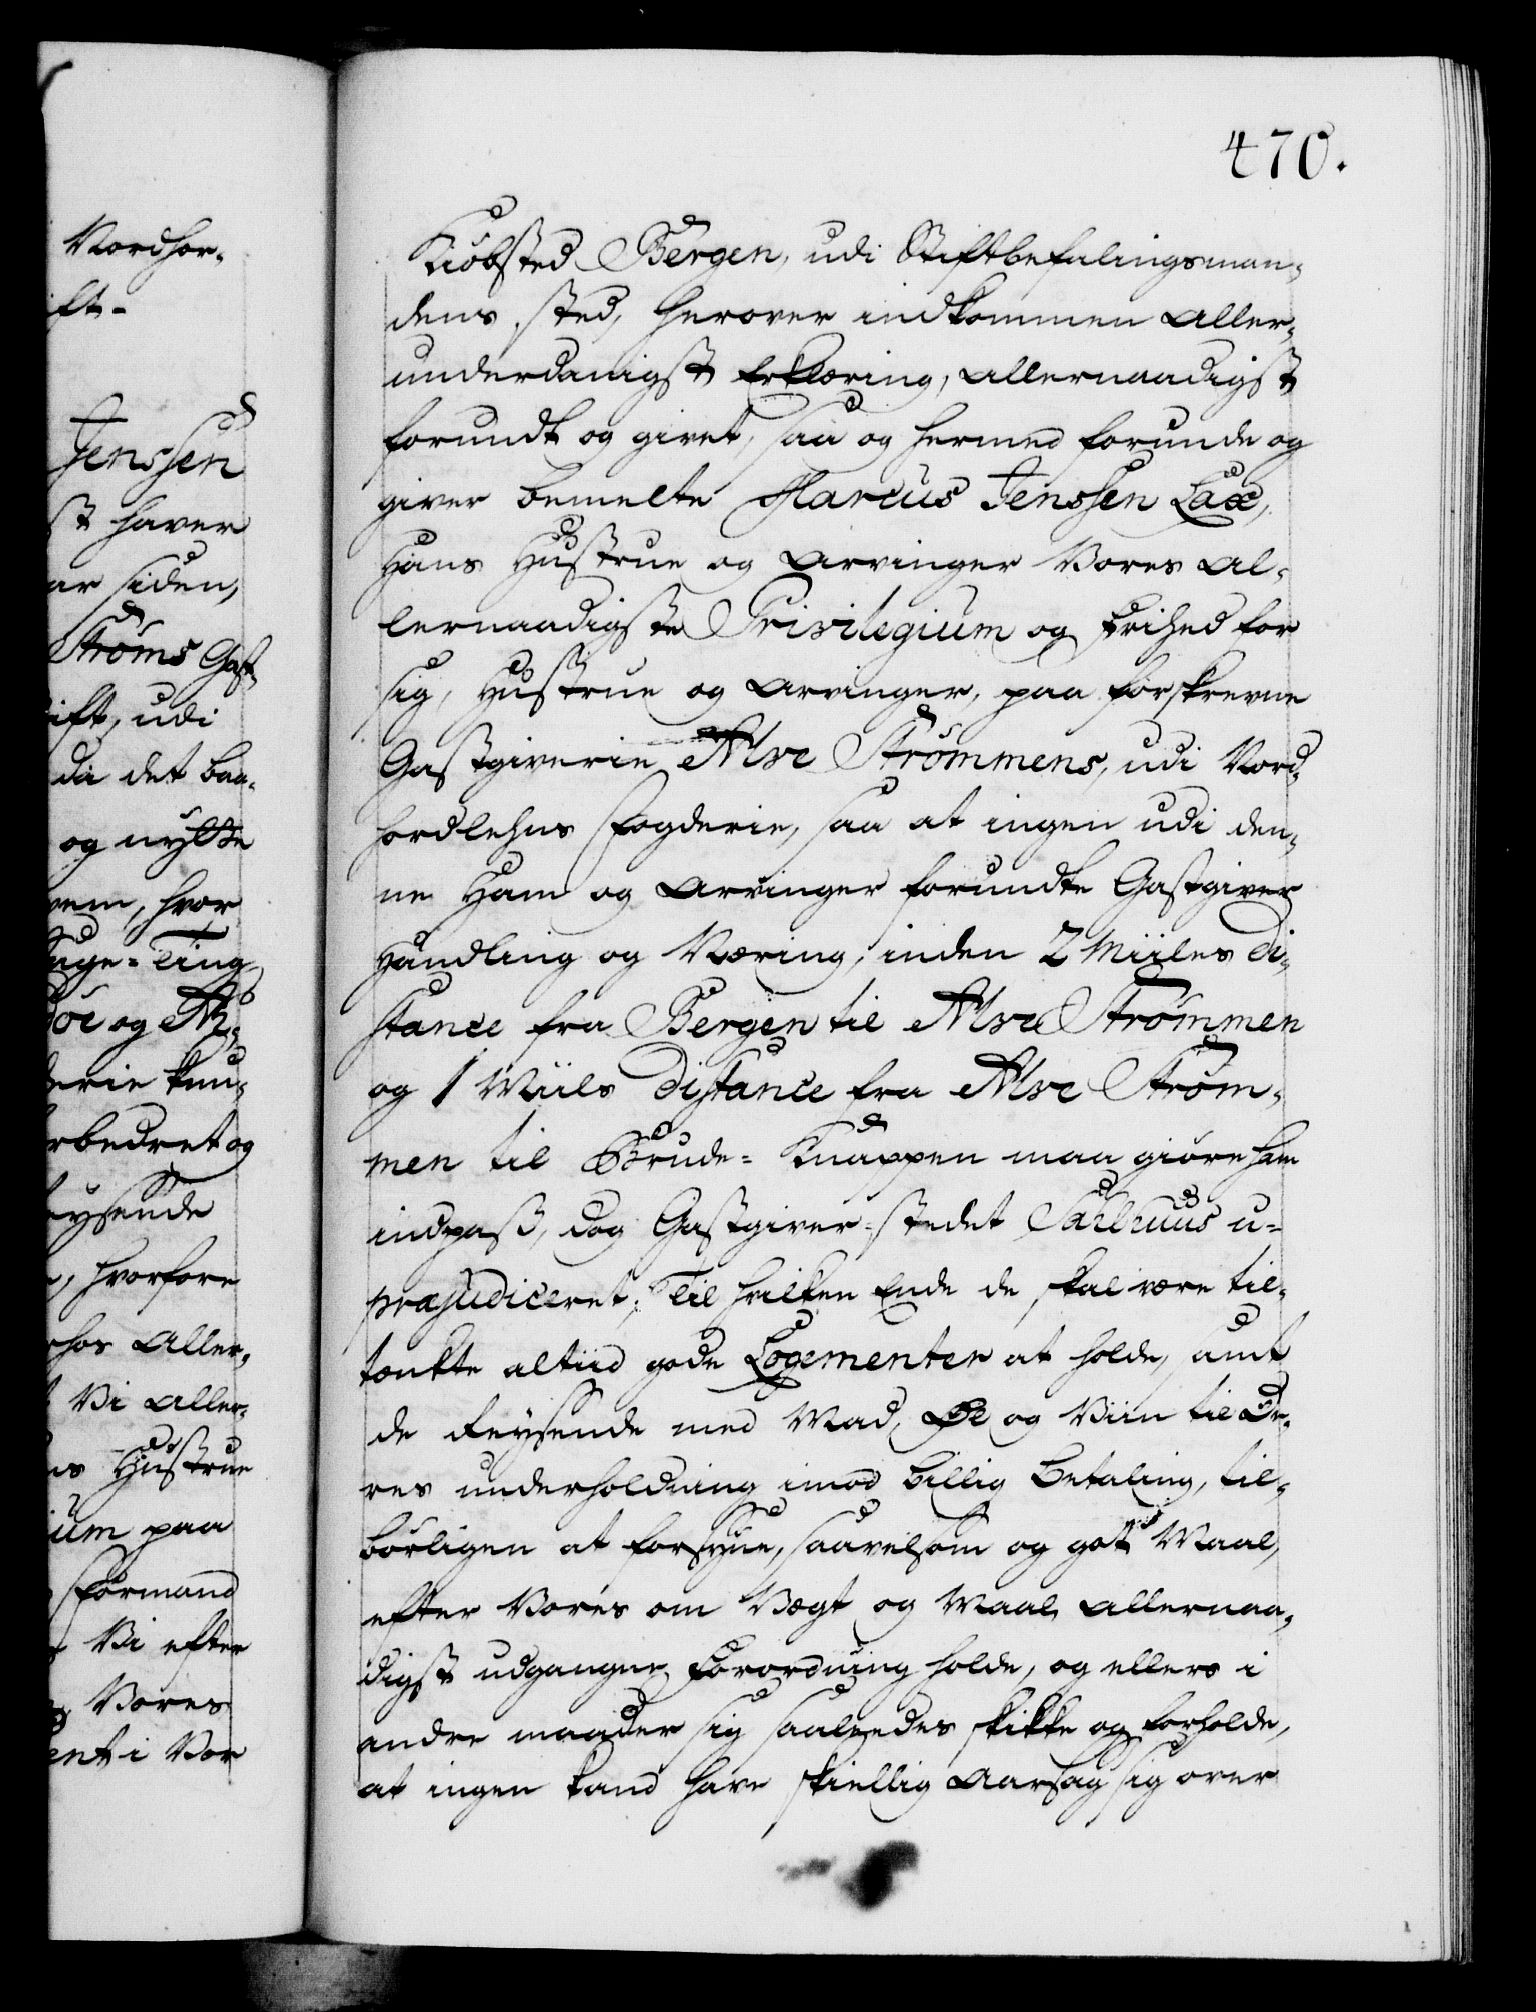 470.
Nordhor-
ift-
Jenssen
st haver
ar siden,
Strøms Gast
ift, udi
da det baa-
og nytte
vem, hvor
uge-Ting
øe og
derie kun-
rbedret og
eysende
, hvorfore
hos Aller-
Vi Aller-
s Hustrue
ium paa
Formand
Vi efter
Vores
ent i Vor
Kiøbsted Bergen, udi Stiftbefalingsman-
dens sted, herover indkommen Aller-
underdanigst Erklæring, allernaadigst
forundt og givet, saa og hermed forunde og
giver bemelte Marcus Jenssen Lax,
Hans Hustrue og Arvinger Vores Al-
lernaadigste Privilegium og Frihed for
sig, Hustrue og Arvinger, paa forskrevne
Gastgiverie Alve Strømmens, udi Nord-
hordlehns Fogderie, saa at ingen udi den-
ne Ham og Arvinger forundte Gastgiver
Handling og Næring, inden 2 Miiles Di-
stance fra Bergen til Alve Strømmen
og 1 Miils Distance fra Alve Strøm-
men til Brude-Knappen maa giøre ham
indpass, dog Gastgiver-stedet Salhuus u-
præjudiceret; Til hvilken Ende de skal være til-
tænkte altiid gode Logementer at holde, samt
de Reysende med Mad, Øl og Viin til De-
res underholdning imod billig Betaling, til-
børligen at forsyne, saavelsom og got Maal,
efter Vores om Vægt og Maal Allernaa-
digst udgangne Forordning holde, og ellers i
andre maader sig saaledes skikke og forholde,
at ingen kand have skiellig Aarsag sig over